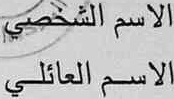 الاسم الشخصي
الاسم العائلي